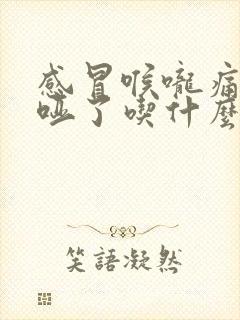 感冒喉嚨痛
啞了喫什麼
笑語凝然